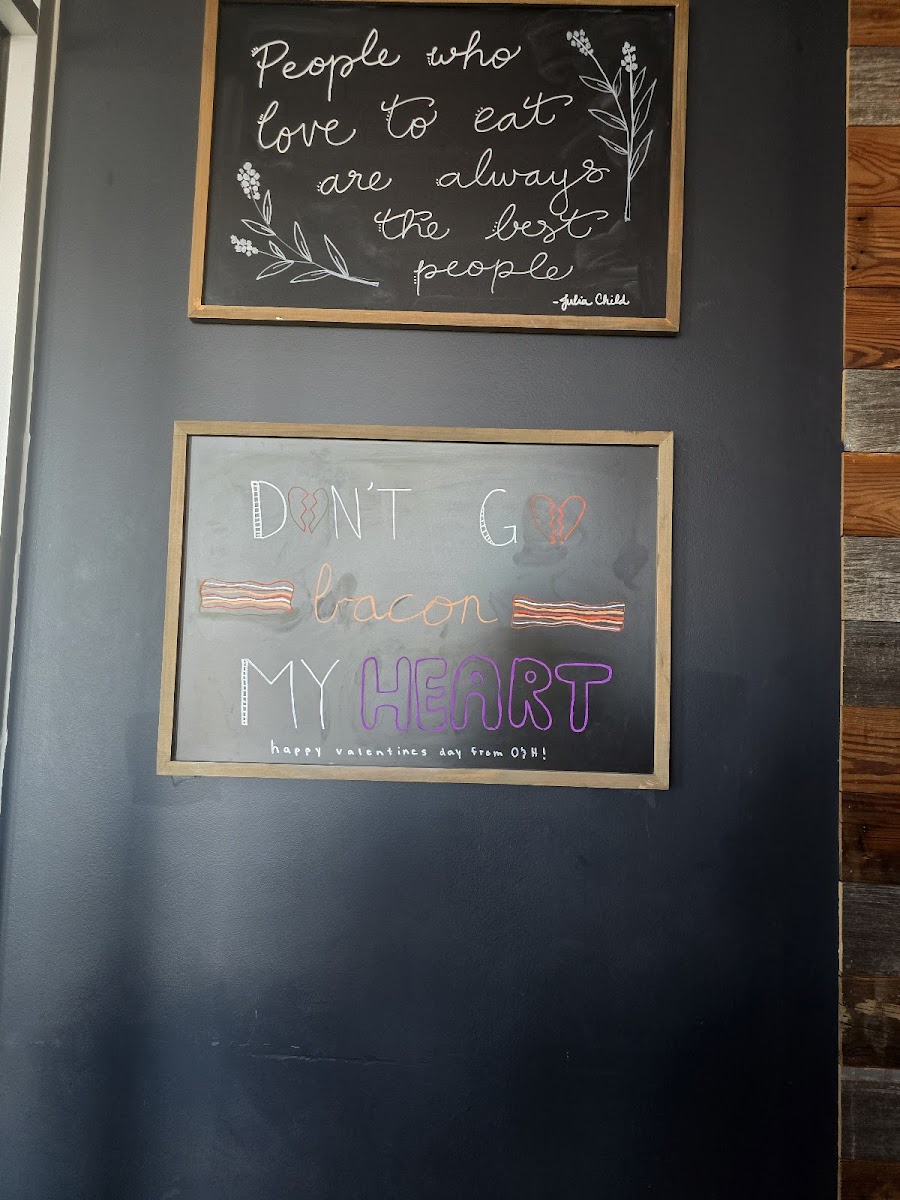 People who
love to eat
are always
the best
people
-Julia Child
DON'T GO
bacon
MY HEART
happy valentines day from O&H!